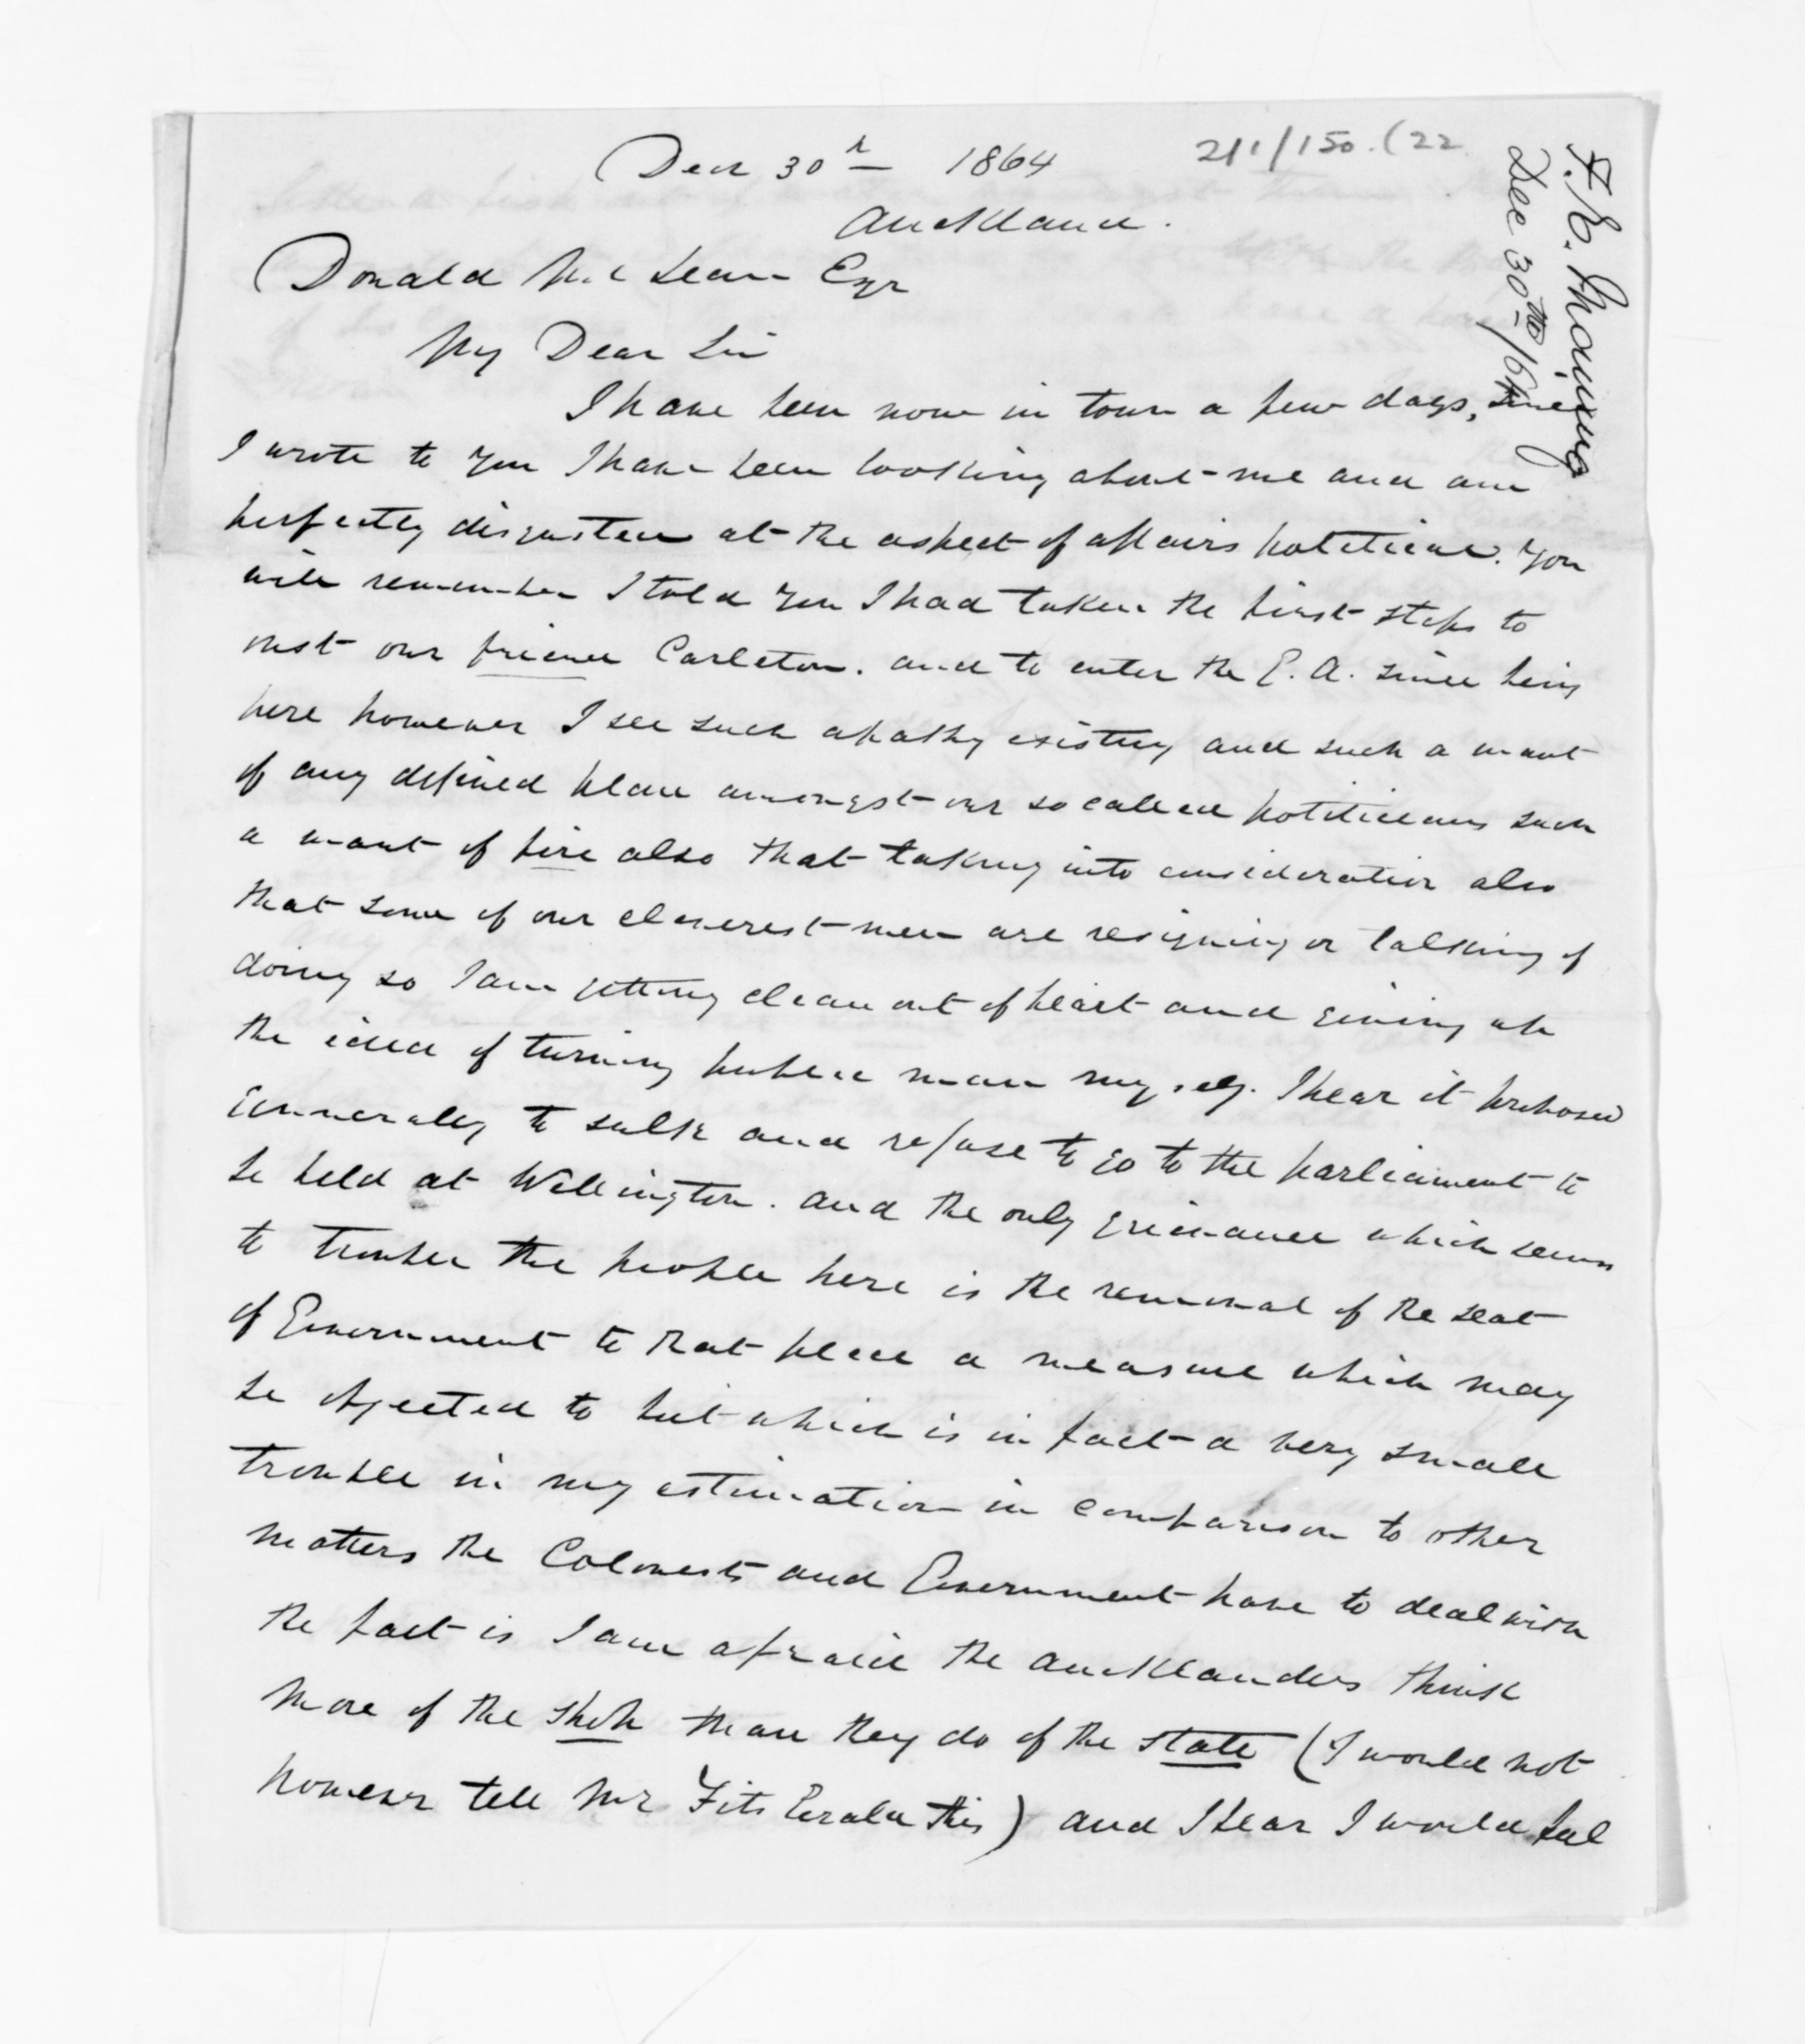 Decr 30th 1864
2/1/150.(22
Auckland.
F. E. Maning
Dec 30th/64
Donald McLean Esqr
My Dear Sir
I have been now in town a few days, since
I wrote to you I have been looking about me and am
perfectly disgusted at the aspect of affairs political. You
will remember I told you I had taken the first steps to
oust our friend Carleton. and to enter the G. A. since being
here however I see such apathy existing and such a want
of any defined plan amongst our so called politicians such
a want of fire also that taking into consideration also
that some of our cleverest men are resigning or talking of
doing so I am getting clean out of heart and giving up
the idea of turning public man myself. I hear it proposed
generally to sulk and refuse to go to the parliament to
be held at Wellington. and the only grievance which seems
to trouble the people here is the removal of the seat
of Government to that place a measure which may
be objected to but which is in fact a very small
trouble in my estimation in comparison to other
matters the Colonists and Government have to deal with
the fact is I am afraid the Aucklanders think
more of the shop than they do of the state (I would not
however tell Mr Fitz Gerald this) and I fear I would feel